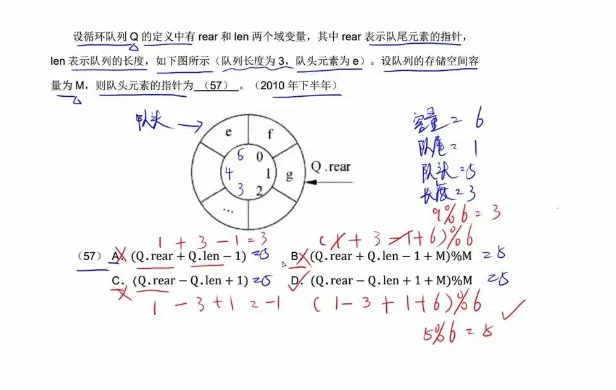 设循环队列 Q 的定义中有 rear 和 len 两个域变量，其中 rear 表示队尾元素的指针，
len 表示队列的长度，如下图所示（队列长度为 3，队头元素为 e）。设队列的存储空间容
量为 M，则队头元素的指针为 （57） 。（2010 年下半年）
队头
e f
5 0
4 1 g
3 2
...
Q.rear
容量 = 6
队尾 = 1
队头 = 5
长度 = 3
9%6 = 3
1 + 3 - 1 = 3
(1 + 3 - 1 + 6)%6
（57） A. (Q.rear + Q.len − 1) =5 B. (Q.rear + Q.len − 1 + M)%M =5
C. (Q.rear − Q.len + 1) =5 D. (Q.rear − Q.len + 1 + M)%M =5
1 - 3 + 1 = -1 (1 - 3 + 1 + 6)%6
5%6 = 5